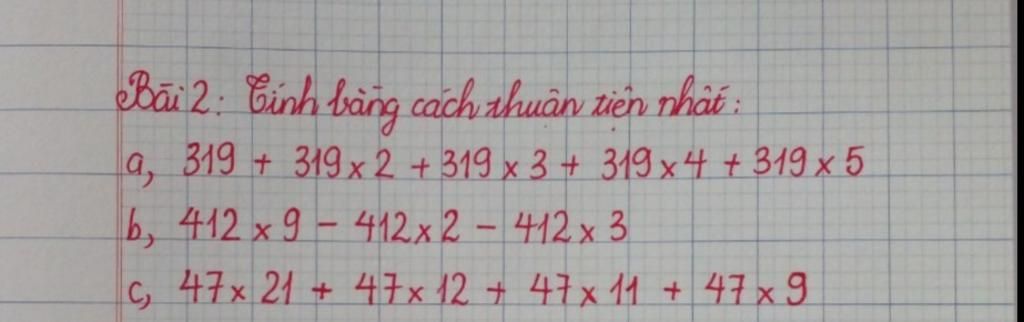 Bài 2: Tính bằng cách thuận tiện nhất:
a, 319 + 319 x 2 + 319 x 3 + 319 x 4 + 319 x 5
b, 412 x 9 - 412 x 2 - 412 x 3
c, 47 x 21 + 47 x 12 + 47 x 11 + 47 x 9